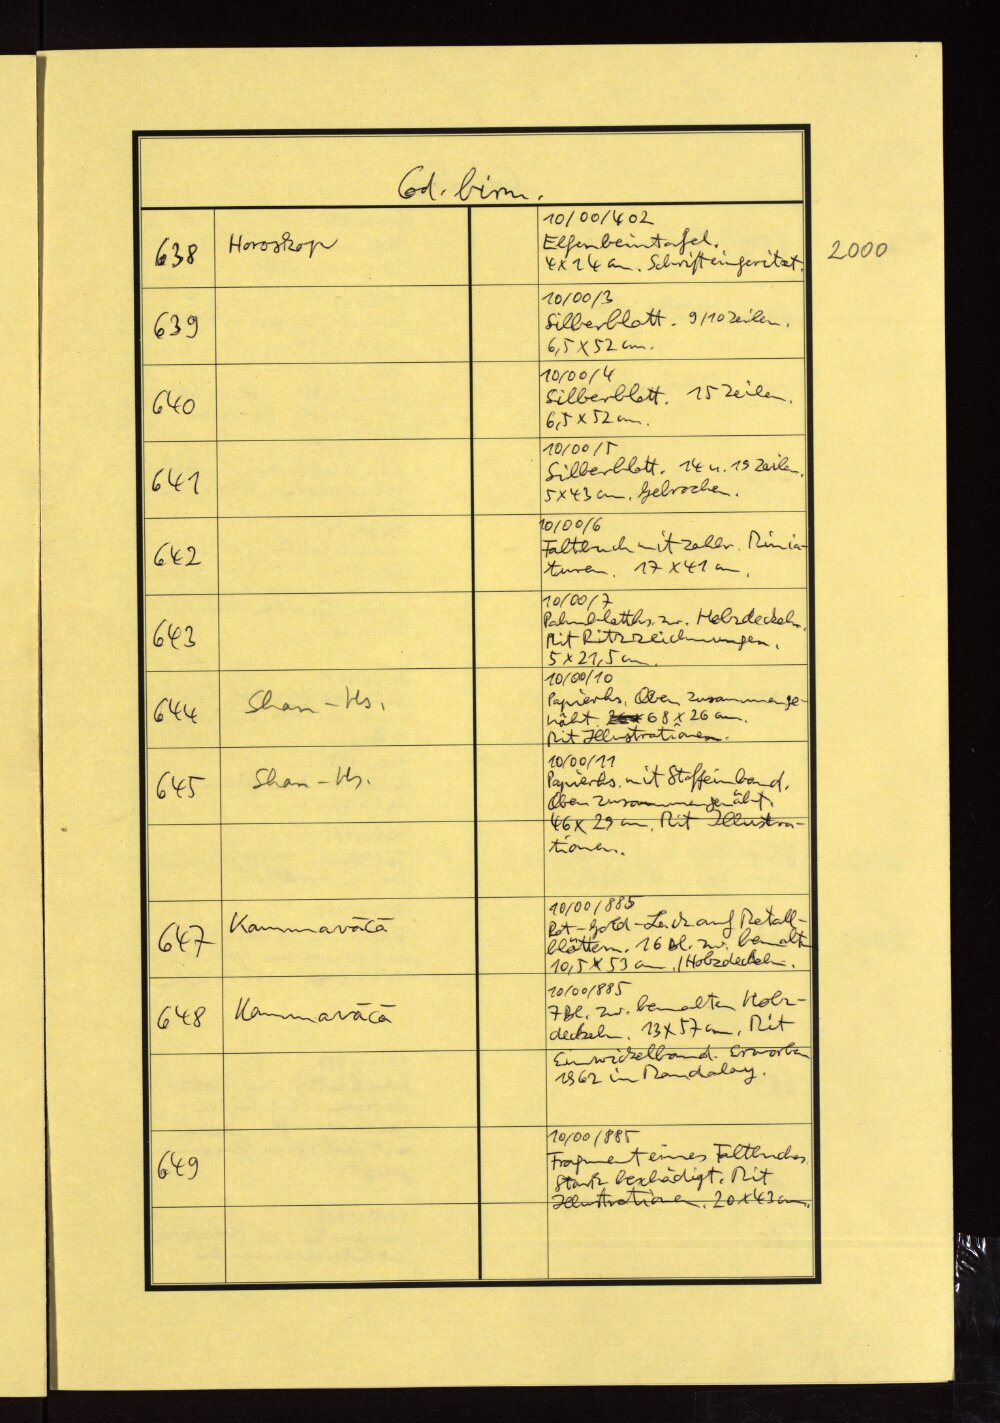 Cod. birm.
638
Horoskop
10/00/402
Elfenbeintafel.
4x14 cm. Schrift eingeritzt.
2000
639
10/00/3
Silberblatt. 9/10 Zeilen.
6,5 x 52 cm.
640
10/00/4
Silberblatt. 15 Zeilen.
6,5 x 52 cm.
641
10/00/5
Silberblatt. 14 u. 19 Zeilen.
5x43 cm. Gebrochen.
642
10/00/6
Faltbuch mit zahlr. Minia-
turen. 17 x 41 cm.
643
10/00/7
Palmblatths. zw. Holzdeckeln.
Mit Ritzzeichnungen.
5 x 21,5 cm.
644
Shan-Hs.
10/00/10
Papierhs. Oben zusammenge-
näht. 68 x 26 cm.
Mit Illustrationen.
645
Shan-Hs.
10/00/11
Papierhs. mit Stoffeinband.
Oben zusammengenäht.
46 x 29 cm. Mit Illustra-
tionen.
647
Kammavācā
10/00/885
Rot-Gold-Lack auf Metall-
blättern. 16 Bl. zw. bemalt.
10,5 x 53 cm. / Holzdeckeln.
648
Kammavācā
10/00/885
7 Bl. zw. bemalten Holz-
deckeln. 13 x 57 cm. Mit
Einwickelband. Erworben
1962 in Mandalay.
649
10/00/885
Fragment eines Faltbuches
Stark beschädigt. Mit
Illustrationen. 20 x 43 cm.